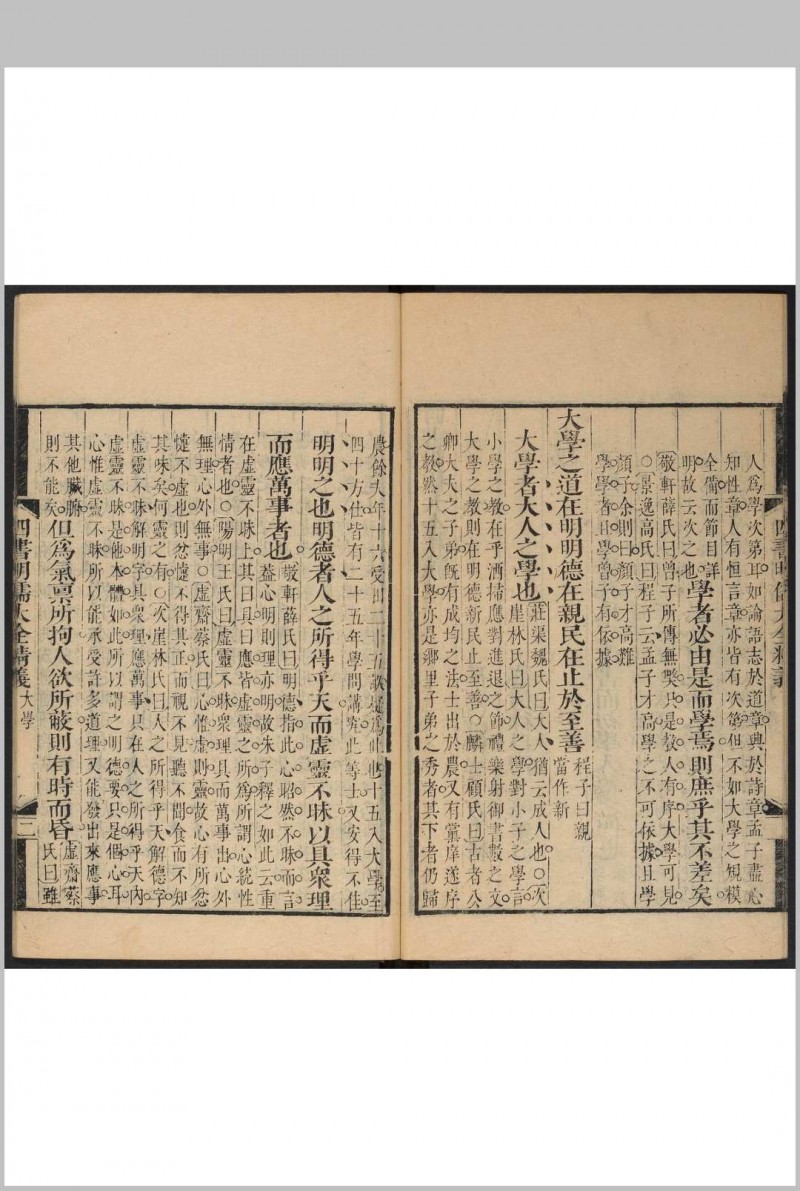 人爲學次第耳如論語志於道章興於詩章孟子盡心
知性章人有恒言章亦皆有次第但不如大學之規模
全備而節目詳
明故云次之也學者必由是而學焉則庶乎其不差矣
敬軒薛氏曰曾子所傳無獘只是教人有序大學可見
○景逸高氏曰程子云孟子才高學之不可依據且學
顏子余則曰顏子才高難
學學者且學曾子有依據
大學之道在明明德在親民在止於至善程子曰親
當作新
大學者大人之學也莊渠魏氏曰大人猶云成人也○次
崖林氏曰大人之學對小子之學言
小學之教在乎洒掃應對進退之節禮樂射御書數之文
大學之教則在明德新民止至善○麟士顧氏曰古者公
卿大夫之子弟既有成均之法士出於農又有黨庠遂序
之教然十五入大學亦是鄉里子弟之秀者其下者仍歸
農餘夫年十六受田二十五畝是爲此也十五入大學至
四十方仕皆有二十五年學問講究此等士又安得不佳
明明之也明德者人之所得乎天而虛靈不昧以具衆理
而應萬事者也敬軒薛氏曰明德指此心昭然不昧而言
蓋心明則理亦明故朱子釋之如此云重
在虛靈不昧上其曰具曰應皆虛靈之所爲所謂心統性
情者也○陽明王氏曰虛靈不昧衆理具而萬事出心外
無理心外無事○虛齋蔡氏曰心惟虛則靈故心有所忿
懥不虛也則忿懥不得其正而視不見聽不聞食而不知
其味矣何靈之有○次崖林氏曰人之所得乎天解德字
虛靈不昧解明字具衆理應萬事只在人之所得乎天內
虛靈不昧是他本體如此所以謂之明德要只是個心耳
心惟虛靈不昧所以能承受許多道理又能發出來應事
其他臟腑
則不能矣但爲氣稟所拘人欲所蔽則有時而昏虛齋蔡
氏曰雖
四書明儒大全精義 大學 二